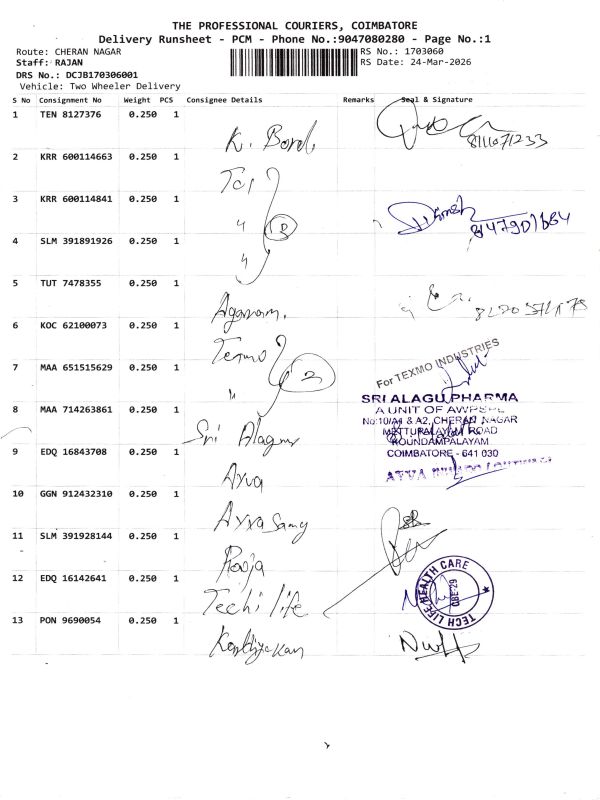 THE PROFESSIONAL COURIERS, COIMBATORE
Delivery Runsheet - PCM - Phone No.:9047080280 - Page No.:1
Route: CHERAN NAGAR
RS No.: 1703060
Staff: RAJAN
RS Date: 24-Mar-2026
DRS No.: DCJB170306001
Vehicle: Two Wheeler Delivery
S No Consignment No Weight PCS Consignee Details Remarks Seal & Signature
1 TEN 8127376 0.250 1
K.
2 KRR 600114663 0.250 1
3 KRR 600114841 0.250 1
〃 3
4 SLM 391891926 0.250 1
〃
5 TUT 7478355 0.250 1
Agaram.
6 KOC 62100073 0.250 1
Texmo
For TEXMO INDUSTRIES
7 MAA 651515629 0.250 1
〃 2
8 MAA 714263861 0.250 1
Sri Alagu
SRI ALAGU PHARMA
A UNIT OF
No:10/A4 & A2, CHERAN NAGAR
METTUPALAYAM ROAD
KOUNDAMPALAYAM
COIMBATORE - 641 030
9 EDQ 16843708 0.250 1
Ayya
AYYA
10 GGN 912432310 0.250 1
Ayya Samy
11 SLM 391928144 0.250 1
Rooja
12 EDQ 16142641 0.250 1
Techi life
TECH LIFE HEALTH CARE
CBE-29
13 PON 9690054 0.250 1